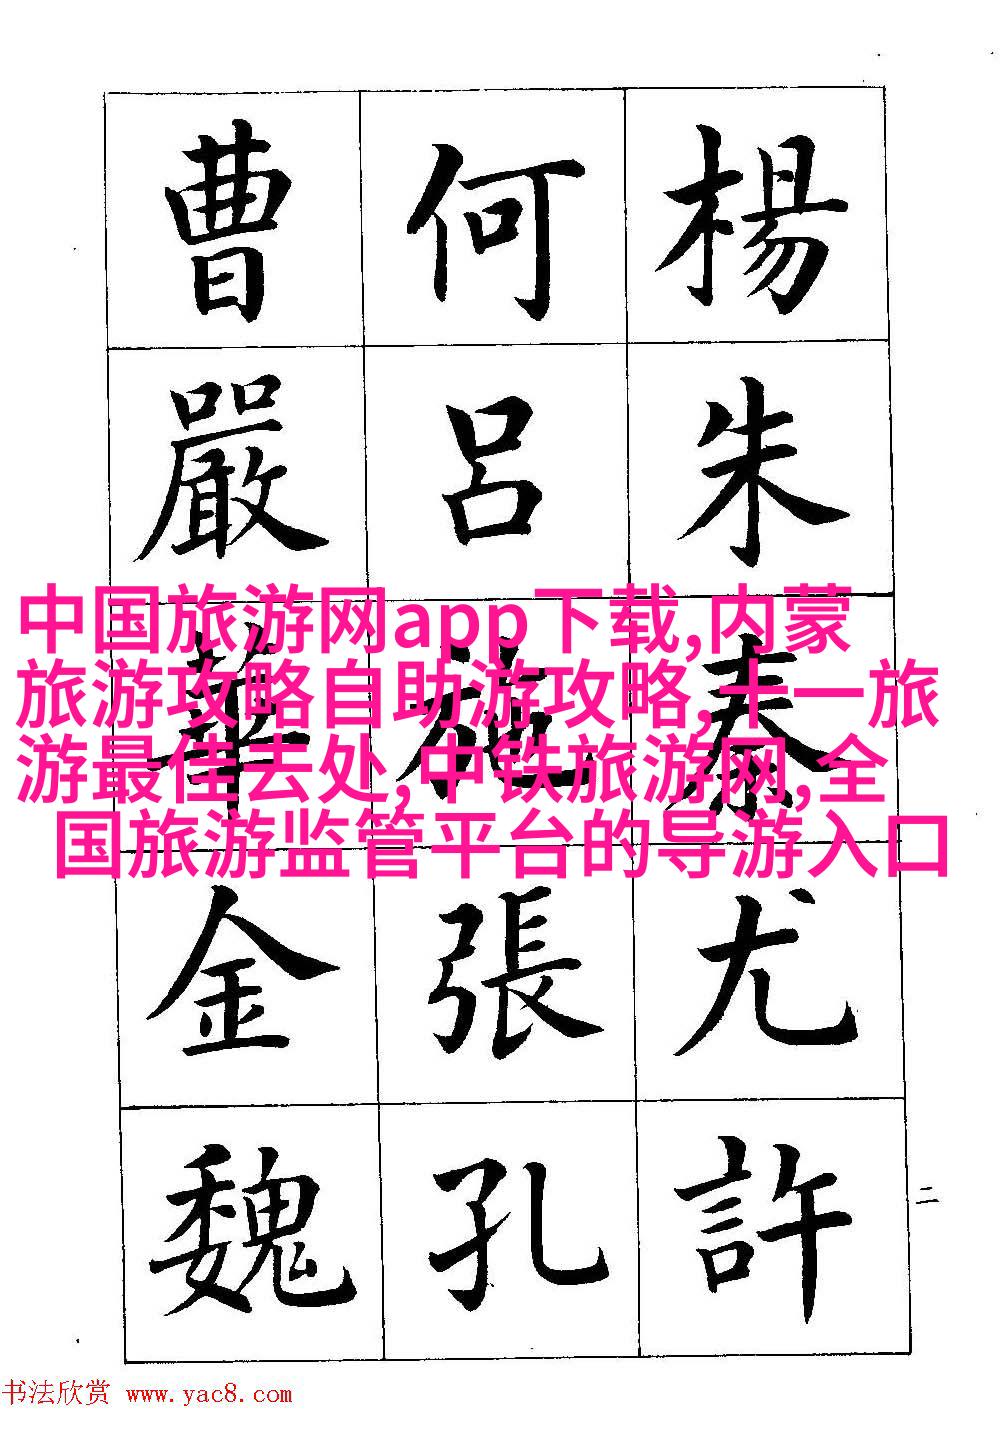 楊朱秦尤許
何呂施張孔
曹嚴華金魏
二
中国旅游网app下载,内蒙
旅游攻略自助游攻略,十一旅
游最佳去处,中铁旅游网,全
国旅游监管平台的导游入口
书法欣赏 www.yac8.com